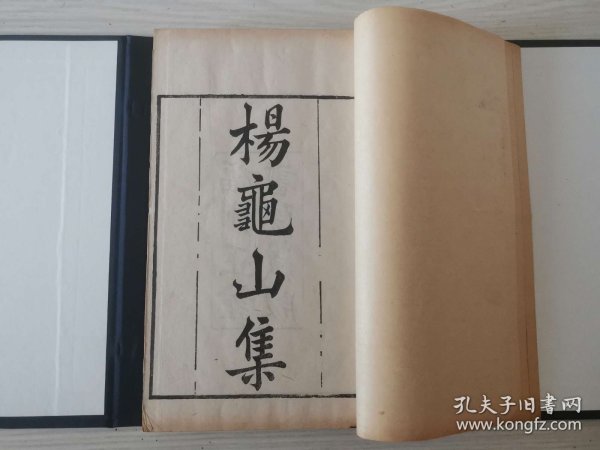 楊龜山集
孔夫子旧书网
www.kongfz.com